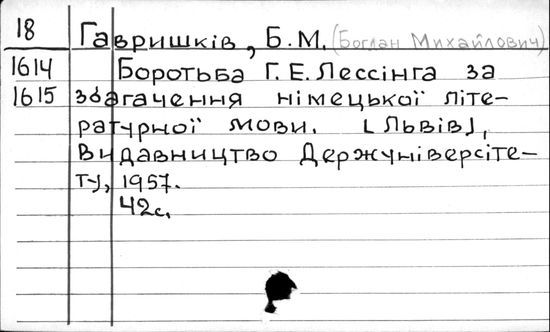 18 Гавришків, Б.М. (Богдан Михайлович)
1614 Боротьба Г.Е. Лессінга за
1615 збагачення німецької літе-
ратурної мови. [Львів],
Видавництво Держуніверсіте-
ту, 1957.
42с.